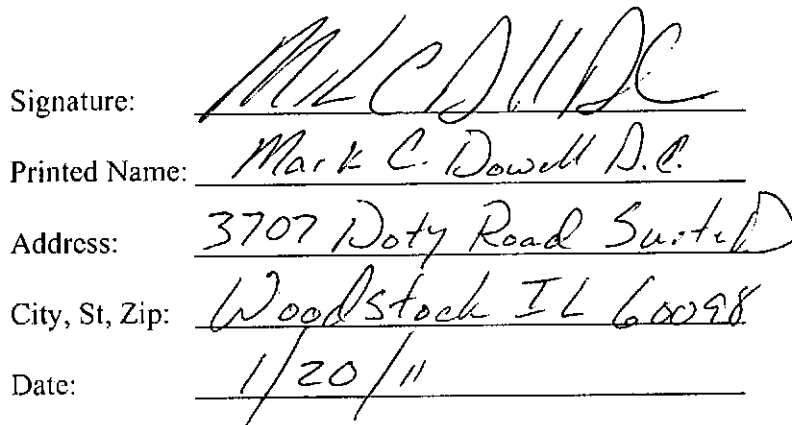 Signature: M C D DC
Printed Name: Mark C. Dowell D.C.
Address: 3707 Doty Road Suite D
City, St, Zip: Woodstock IL 60098
Date: 1/20/11